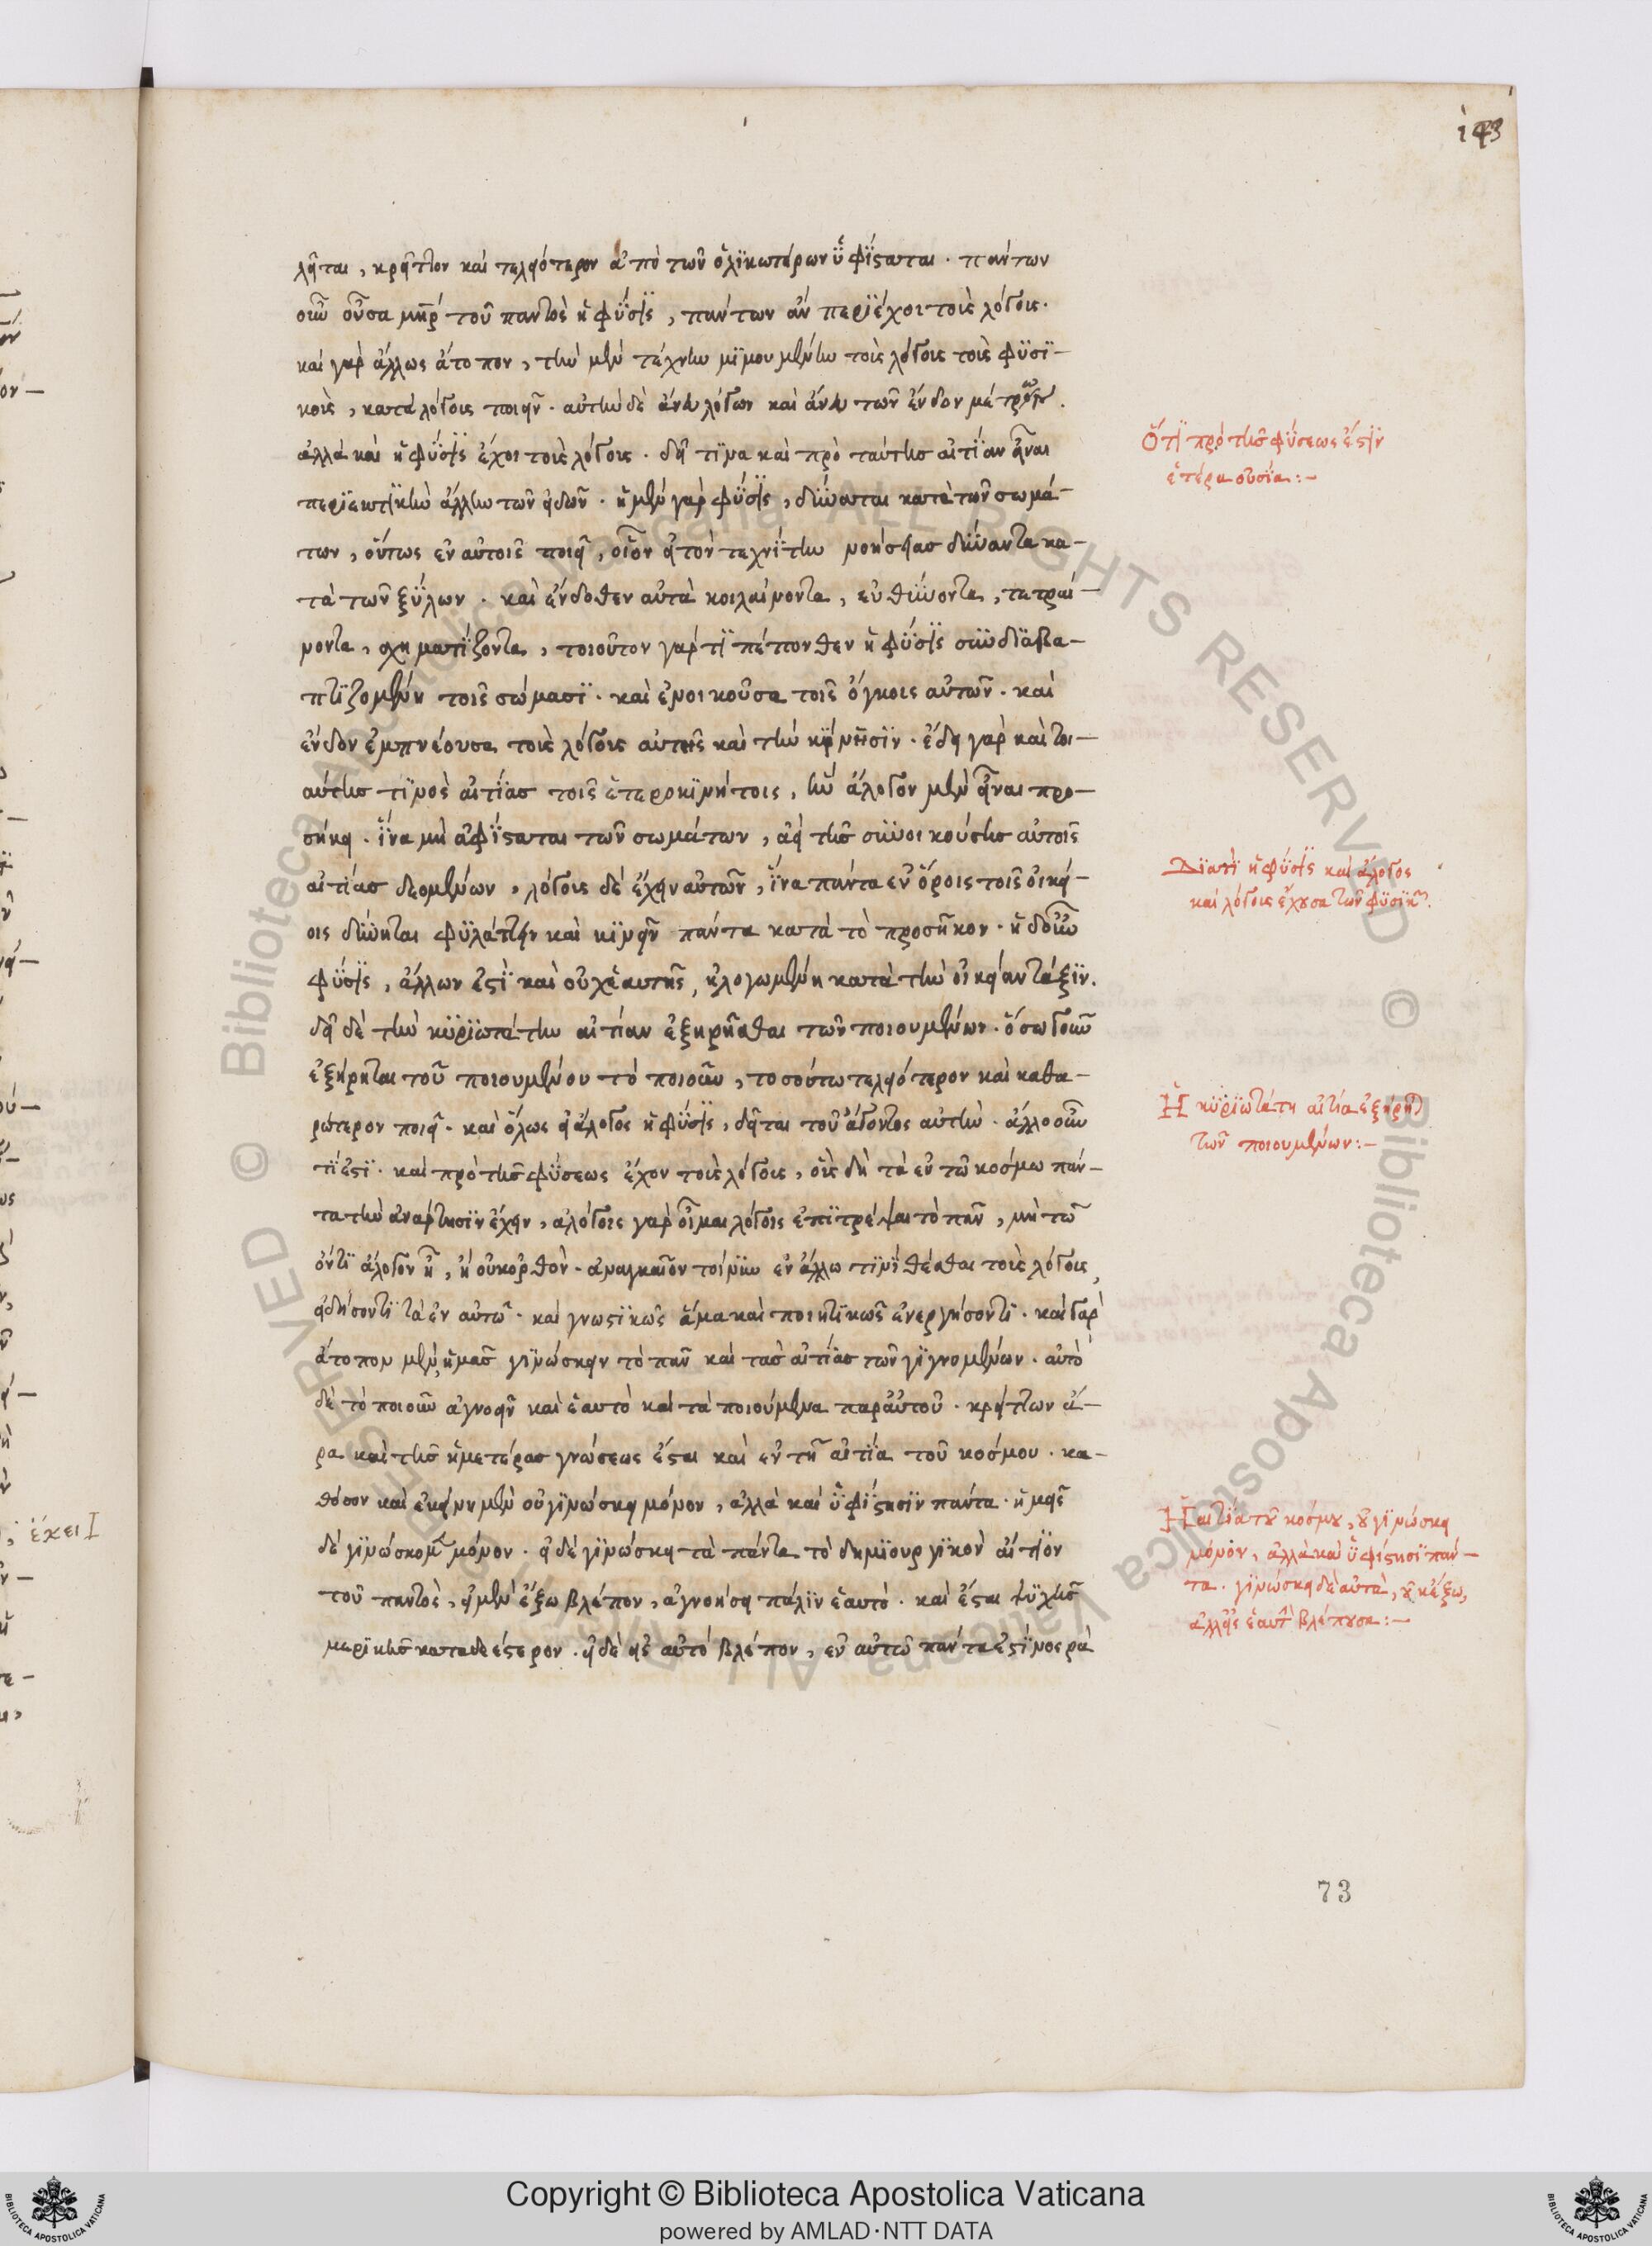 143
λεῖται, κρεῖττον καὶ τελειότερον ἀπὸ τῶν ὁλικωτέρων ὑφίσταται. πάντων
οὖν οὖσα μήτηρ τοῦ παντὸς ἡ φύσις, πάντων ἂν περιέχοι τοὺς λόγους.
καὶ γὰρ ἄλλως ἄτοπον, τὴν μὲν τέχνην μιμουμένην τοὺς λόγους τοὺς φυσι-
κοὺς, κατὰ λόγους ποιεῖν. αὐτὴν δὲ ἄνευ λόγων καὶ ἄνευ τῶν ἔνδον μέτρων.
ἀλλὰ καὶ ἡ φύσις ἔχοι τοὺς λόγους. δεῖ τινα καὶ πρὸ ταύτης αἰτίαν εἶναι
περιεκτικὴν ἄλλην τῶν εἰδῶν. ἡ μὲν γὰρ φύσις, δύνασται κατὰ τῶν σωμά-
των, οὕτως ἐν αὐτοῖς ποιεῖ, οἷον εἰ τὸν τεχνίτην νοήσειας δύναντα κα-
τὰ τῶν ξύλων. καὶ ἔνδοθεν αὐτὰ κοιλαίνοντα, εὐθύνοντα, τετραί-
νοντα, σχηματίζοντα, τοιοῦτον γάρ τι πέπονθεν ἡ φύσις συνδιαβα-
πτιζομένη τοῖς σώμασι. καὶ ἐνοικοῦσα τοῖς ὄγκοις αὐτῶν. καὶ
ἔνδον ἐμπνέουσα τοὺς λόγους αὐτοῖς καὶ τὴν κίνησιν. ἔδει γὰρ καὶ τοι-
αύτης τινὸς αἰτίας τοῖς ἑτεροκινήτοις, ἣν ἄλογον μὲν εἶναι προ-
σήκει. ἵνα μὴ ἀφίσταται τῶν σωμάτων, ἀεὶ τῆς συνοικούσης αὐτοῖς
αἰτίας δεομένων, λόγους δὲ ἔχειν αὐτῶν, ἵνα πάντα ἐν ὅροις τοῖς οἰκεί-
οις δύνηται φυλάττειν καὶ κινεῖν πάντα κατὰ τὸ προσῆκον. ἡ δ' οὖν
φύσις, ἄλλων ἐστὶ καὶ οὐχ ἑαυτῆς, ἠλογωμένη κατὰ τὴν οἰκείαν τάξιν.
δεῖ δὲ τὴν κυριωτάτην αἰτίαν ἐξηρῆσθαι τῶν ποιουμένων. ὅσω γοῦν
ἐξήρηται τοῦ ποιουμένου τὸ ποιοῦν, τοσούτω τελειότερον καὶ καθα-
ρώτερον ποιεῖ. καὶ ὅλως εἰ ἄλογος ἡ φύσις, δεῖται τοῦ ἄγοντος αὐτὴν. ἄλλο οὖν
τι ἐστι. καὶ πρὸ τῆς φύσεως ἔχον τοὺς λόγους, οἷς δὴ τὰ ἐν τῶ κοσμω πάν-
τα τὴν ἀνάρτησιν ἔχειν, ἀλόγοις γὰρ οἶμαι λόγοις ἐπιτρέψαι τὸ πᾶν, μὴ τῶ
ὄντι ἄλογον ἦ, ἢ οὐκ ὀρθὸν. ἀναγκαῖον τοίνυν ἐν ἄλλω τινὶ θέσθαι τοὺς λόγους,
εἰδήσοντι τὰ ἐν αὐτῶ. καὶ γνωστικῶς ἅμα καὶ ποιητικῶς ἐνεργήσοντι. καὶ γὰρ
ἄτοπον μὲν, ἡμᾶς γινώσκειν τὸ πᾶν καὶ τὰς αἰτίας τῶν γιγνομένων. αὐτὸ
δὲ τὸ ποιοῦν ἀγνοεῖν καὶ ἑαυτὸ καὶ τὰ ποιούμενα παρ' αὐτοῦ. κρείττων ἄ-
ρα καὶ τῆς ἡμετέρας γνώσεως ἔσται καὶ ἐν τῆ αἰτία τοῦ κόσμου. κα-
θόσον καὶ ἐκείνη μὲν οὐ γινώσκει μόνον, ἀλλὰ καὶ ὑφίστησιν πάντα. ἡμεῖς
δὲ γινώσκομεν μόνον. εἰ δὲ γινώσκει τὰ πάντα τὸ δημιουργικὸν αἴτιον
τοῦ παντὸς, εἰ μὲν ἔξω βλέπον, ἀγνοήσει πάλιν ἑαυτό. καὶ ἔσται ψυχῆς
μερικῆς καταδεέστερον. εἰ δὲ εἰς αὐτό βλέπον, ἐν αὐτῶ πάντα ἐστὶ νοερὰ
Ὅτι πρὸ τῆς φύσεως ἐστὶν
ἑτέρα οὐσία:-
Διατί ἡ φύσις καὶ ἄλογος
καὶ λόγους ἔχουσα τῶν φυσικῶν.
Ἡ κυριωτάτη αἰτία ἐξήρηται
τῶν ποιουμένων:-
Ἡ αἰτία τοῦ κόσμου, οὐ γινώσκει
μόνον, ἀλλὰ καὶ ὑφίστησι πάν-
τα. γινώσκει δὲ αὐτὰ, οὐκ ἔξω,
ἀλλ' εἰς ἑαυτὴν βλέπουσα:-
ἐκει
73
Copyright © Biblioteca Apostolica Vaticana
powered by AMLAD·NTT DATA